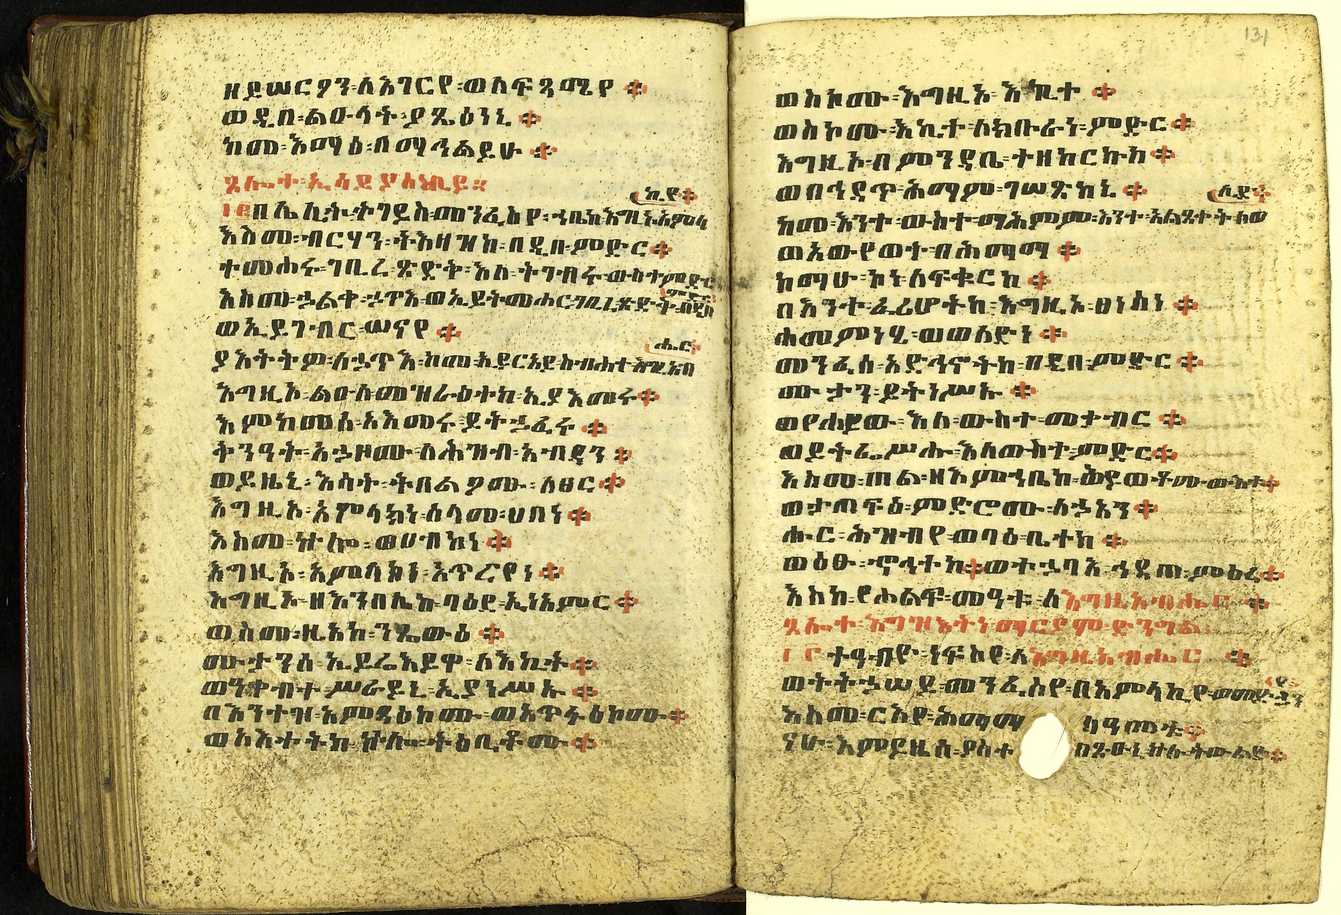 ዘይሠርዖን፡ለእገርየ፡ወለፍጻሜየ።
ወዲበ፡ልዑላት፡ያጼዕነኒ።
ከመ፡እማዕ፡በማኅልይሁ።
ጸሎተ፡ኢሳይያስ፡ነቢይ።
ዘሌሊት፡ትገይስ፡መንፈስየ፡ኀቤከ፡እግዚኦ፡አምላኪየ።
እስመ፡ብርሃን፡ትእዛዝከ፡በዲበ፡ምድር።
ተመሐሩ፡ገቢረ፡ጽድቅ፡እለ፡ትነብሩ፡ውስተ፡ምድር
እስመ፡ኃልቀ፡ኃጥእ፡ወኢይትመሐር፡ገቢረ፡ጽድቅ፡በዲበ፡ምድር
ወኢይገብር፡ሠናየ።
ያእትትዎ፡ለኃጥእ፡ከመ፡ኢይርአይ፡ስብሐተ፡እግዚአብሔር።
እግዚኦ፡ልዑል፡መዝራዕትከ፡ኢያእመሩ።
እምከመሰ፡አእመሩ፡ይትኃፈሩ።
ቅንዓት፡አኃዞሙ፡ለሕዝብ፡አብዳን።
ወይዜኒ፡እሳት፡ትበልዖሙ፡ለፀር።
እግዚኦ፡አምላክነ፡ሰላመ፡ሀበነ።
እስመ፡ኵሎ፡ወሀብከነ።
እግዚኦ፡አምላክነ፡አጥርየነ።
እግዚኦ፡ዘእንበሌከ፡ባዕደ፡ኢነአምር።
ወስመ፡ዚአከ፡ንጼውዕ።
ሙታንሰ፡ኢይሬእይዋ፡ለሕይወት።
ወዓቀብተ፡ሥራይኒ፡ኢያነሥኡ።
በእንተዝ፡አምጻዕከሙ፡ወአጥፋዕኮሙ።
ወአእተትከ፡ኵሎ፡ተዕቢቶሙ።
ወስኮሙ፡እግዚኦ፡እኪተ።
ወስኮሙ፡እኪተ፡ለክቡራነ፡ምድር።
እግዚኦ፡በምንዳቤ፡ተዘከርኩከ።
ወበኅዳጥ፡ሕማም፡ገሠጽከኒ።
ከመ፡እንተ፡ውስተ፡ማሕምም፡እንተ፡አልጸቀት፡ትለድ።
ወአውየወት፡በሕማማ።
ከማሁ፡ኮነ፡ለፍቁርከ።
በእንተ፡ፈሪሆትከ፡እግዚኦ፡ፀነስነ።
ሐመምነሂ፡ወወለድነ።
መንፈሰ፡አድኅኖትከ፡በዲበ፡ምድር።
ሙታን፡ይትነሥኡ።
ወየሐይው፡እለ፡ውስተ፡መቃብር።
ወይትፌሥሑ፡እለ፡ውስተ፡ምድር።
እስመ፡ጠል፡ዘእምኀቤከ፡ሕይወቶሙ፡ውእቱ።
ወታጠፍዕ፡ምድሮሙ፡ለኃጥአን።
ሑር፡ሕዝብየ፡ወባዕ፡ቤተከ።
ወዕፁ፡ኆኅተከ።ወተኃባእ፡ኅዳጠ፡ምዕረ።
እስከ፡የሐልፍ፡መዓቱ፡ለእግዚአብሔር።
ጸሎተ፡እግዝእትነ፡ማርያም፡ድንግል
ታዓብዮ፡ነፍስየ፡ለእግዚአብሔር።
ወትትኃሠይ፡መንፈስየ፡በአምላኪየ፡ወመድኃንየ
እስመ፡ርእየ፡ሕማማ ለዓመቱ።
ናሁ፡እምይእዜሰ፡ያስተ በጽዑኒ፡ኵሉ፡ትውልድ።